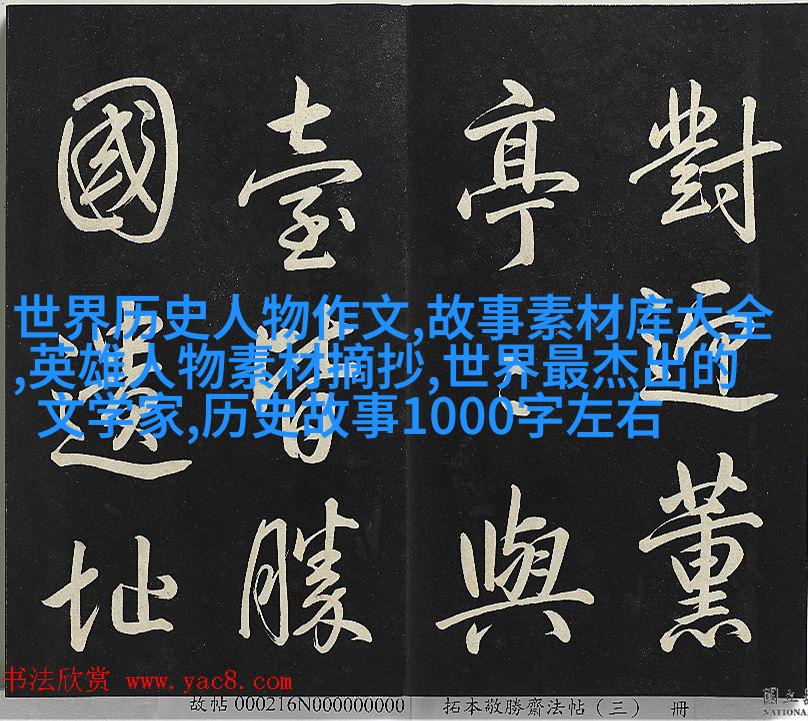 對迎薰
亭與
臺皆勝
國遺址
世界历史人物作文,故事素材库大全
,英雄人物素材摘抄,世界最杰出的
文学家,历史故事1000字左右
书法欣赏 www.yac8.com
故帖 000216N000000000 拓本敬勝齋法帖（三） 册
國立
NATIONA